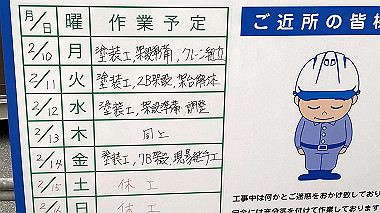 月/日 曜 作業予定
2/10 月 塗装工, 架設準備, クレーン組立
2/11 火 塗装工, 2B架設, 架台解体
2/12 水 塗装工, 架設準備 調整
2/13 木 同上
2/14 金 塗装工, 7B架設, 現場継手工
2/15 土 休工
2/16 日 休工
ご近所の皆様
工事中は何かとご迷惑をおかけ致しており
安全には充分気を付けて作業しております